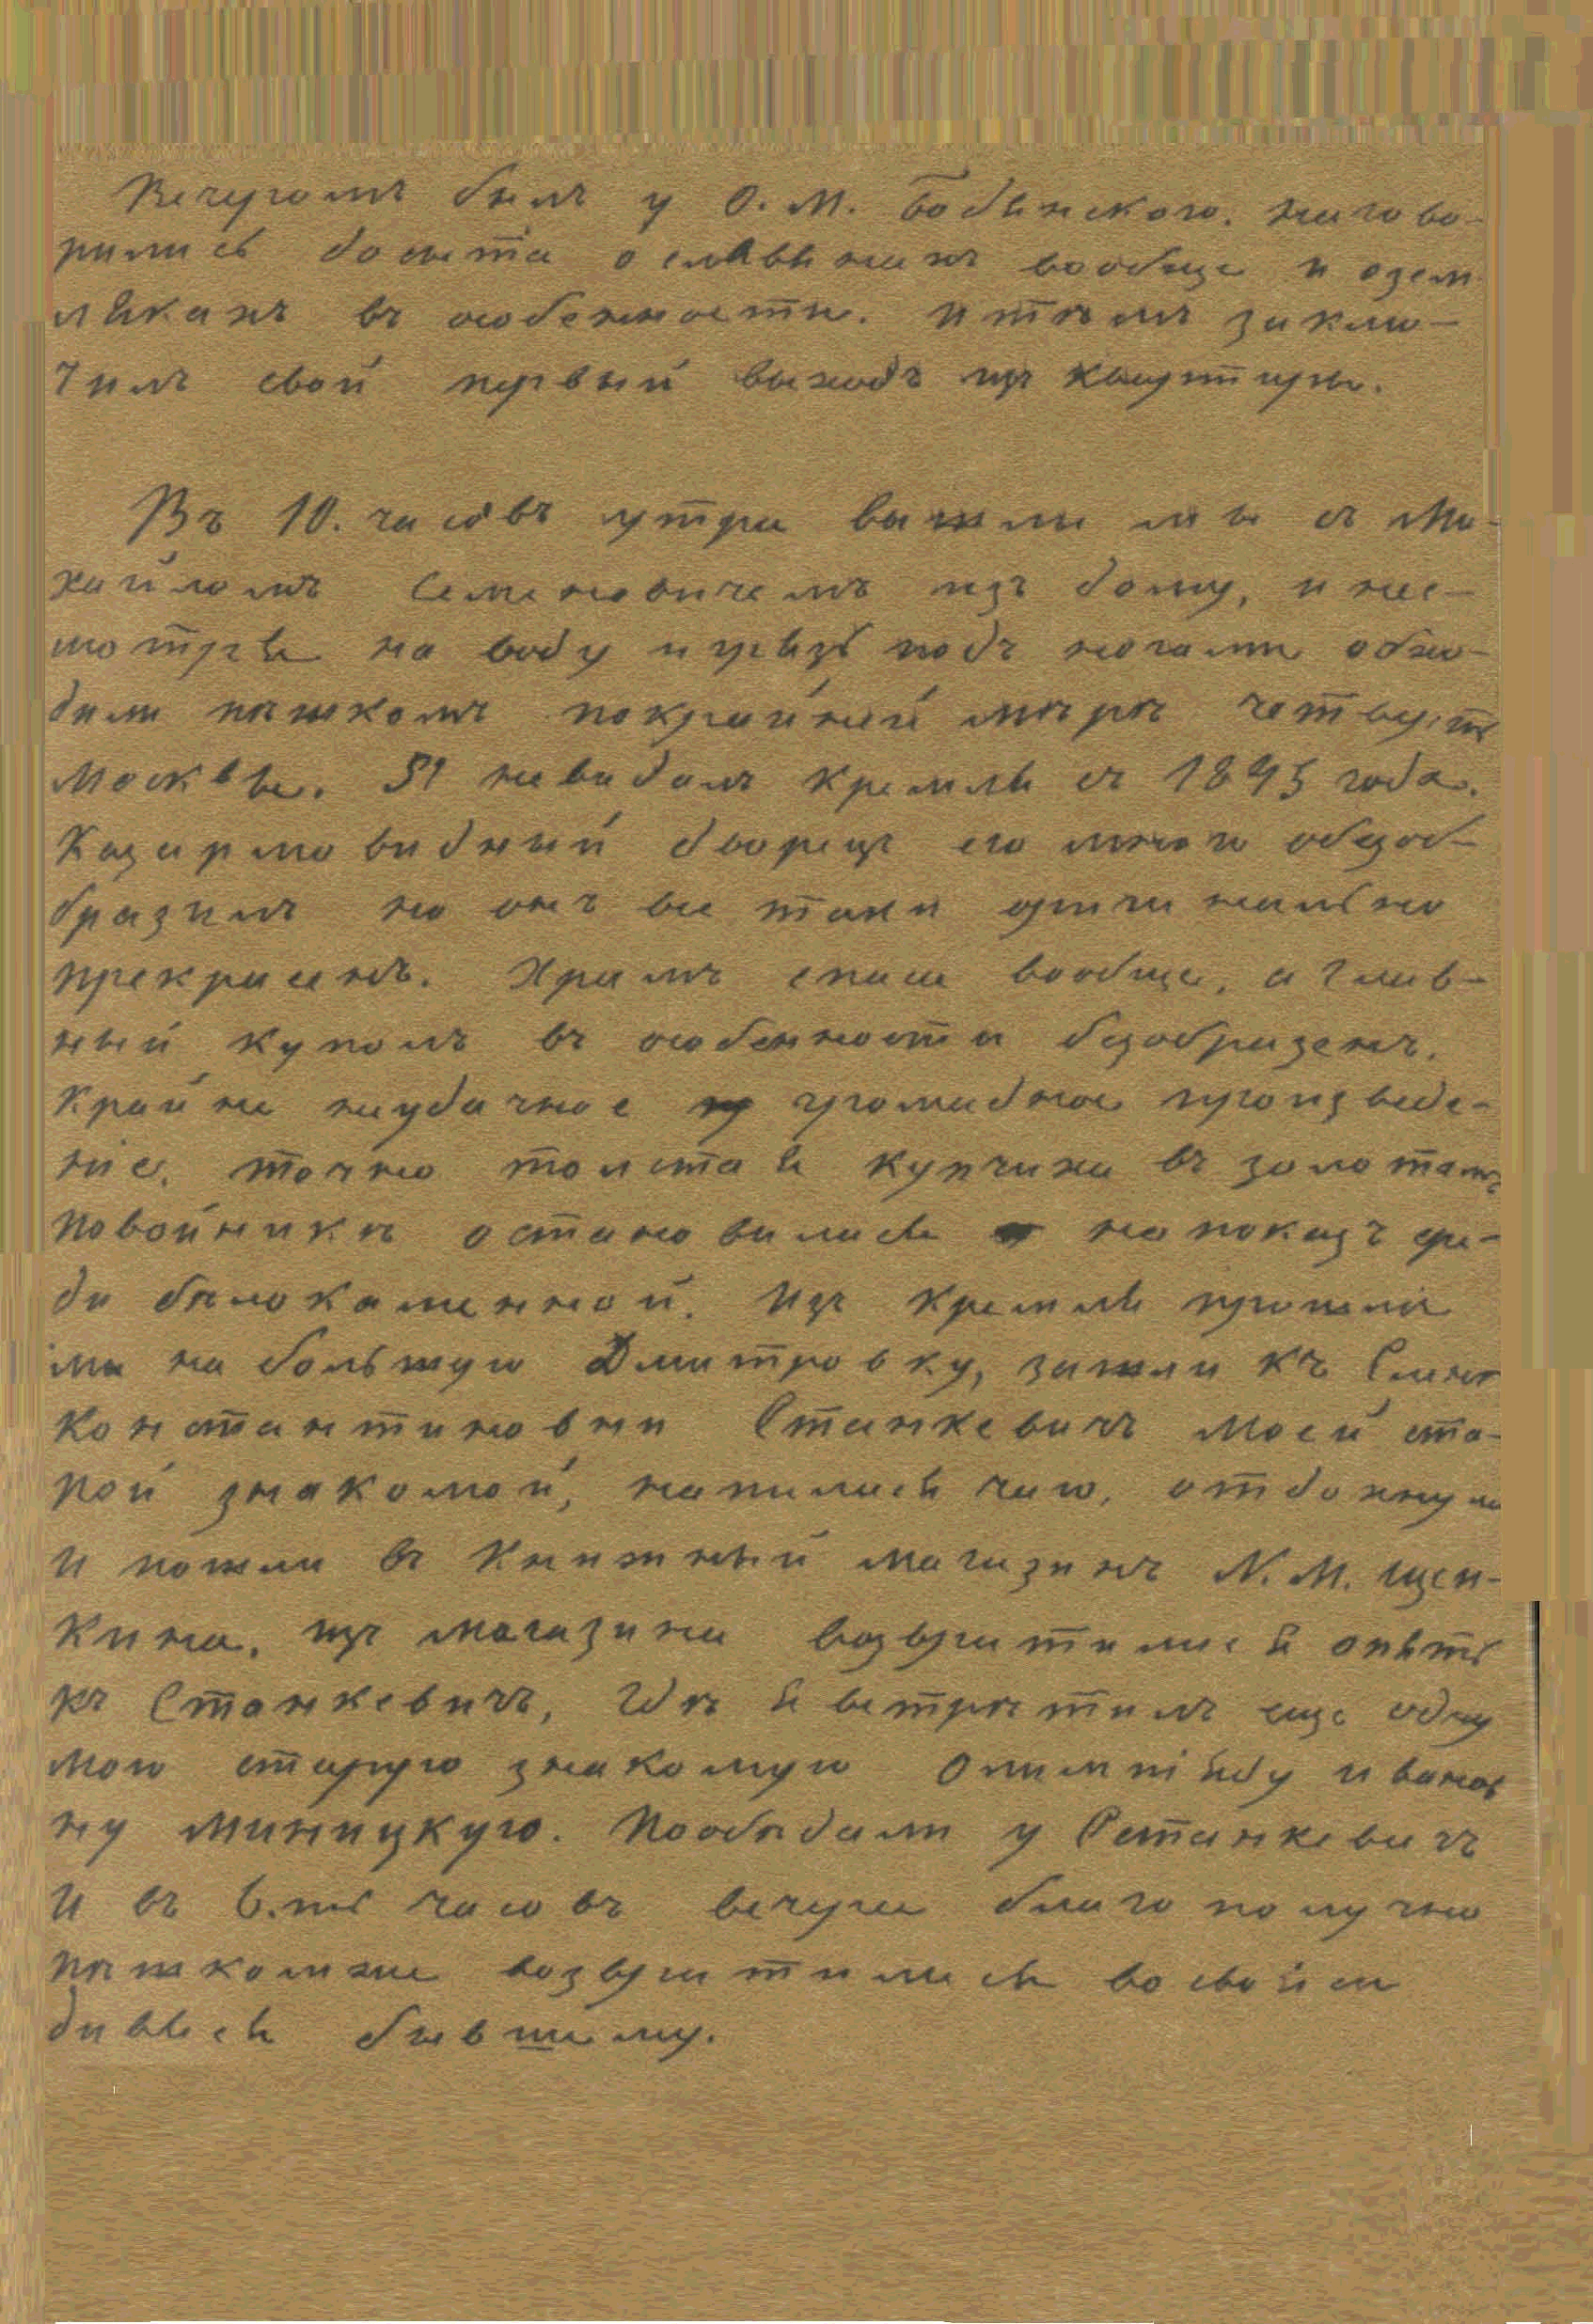 Вечеромъ былъ у О. М. Бодянского. Нагово-
рились досыта о славянахъ вообще и озем-
лякахъ въ особенности. И тѣмъ заклю-
чилъ свой первый выходъ изъ квартиры.
Въ 10. часовъ утра вышли мы съ Ми-
хайломъ Семеновичемъ изъ дому, и нес-
мотря на воду и грязь подъ ногами обхо-
дили пѣшкомъ покрайней мѣрѣ четверть
Москвы. Я невидалъ кремля съ 1845 года.
Казармовидный дворецъ его много обезоб-
бразилъ но онъ все таки оригинально
прекрасенъ. Храмъ спаса вообще, а глав-
ный куполъ въ особенности безобразенъ.
Крайне неудачное громадное произведе-
ніе. точно толстая купчиха въ золотомъ
повойникѣ остановилась на показъ сре-
ди бѣлокаменной. Изъ кремля прошли
мы на большую Дмитровку, зашли къ Елене
Константиновнѣ Станкевичъ моей ста-
рой знакомой, напились чаю, отдохнули
и пошли въ Книжный магазинъ N. М. Щеп-
кина, изъ магазина возвратились опять
къ Станкевичъ, Где я встрѣтилъ еще одну
мою старую знакомую Олимпіяду иванов
ну Миницкую. Пообѣдали у Станкевичъ
и въ 6.ть часовъ вечера благополучно
пѣшкомже возвратились во свояси
дивясь бывшему.